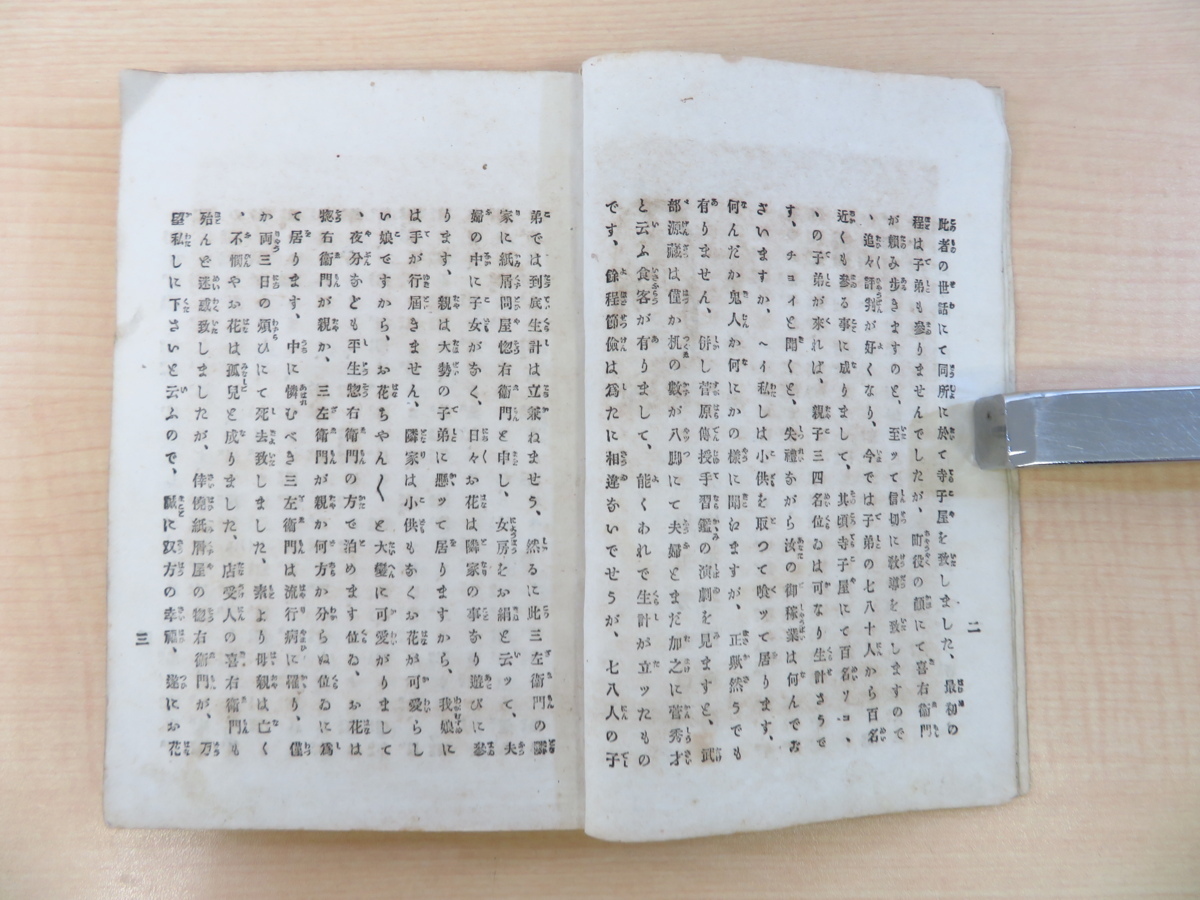 二
此者の世話にて同所に於て寺子屋を致しました、最初の
程は子弟も參りませんでしたが、町役の顔にて喜右衛門
が頼み歩きますのと、至ッて信切に敎導を致しますので
、追々評判が好くなり、今では子弟の七八十人から百名
近くも參る事に成りまして、其頃寺子屋にて百名ソコ、
、の子弟が來れば、親子三四名位ゐは可なり生計さうで
す、チョイと聞くと、失禮ながら汝の御稼業は何んでお
ざいますか、ヘイ私しは小供を取つて喰ッて居ります、
何んだか鬼人か何にかの樣に聞ねますが、正歟然うでも
有りません、併し菅原傳授手習鑑の演劇を見ますと、武
部源藏は僅か机の數が八脚にて夫婦とまだ加之に菅秀才
と云ふ食客が有りまして、能くわれで生計が立ッたもの
です、餘程節儉は爲たに相違ないでせうが、七八人の子
弟では到底生計は立兼ねませう、然るに此三左衛門の隣
家に紙屑問屋惣右衛門と申し、女房をお絹と云ッて、夫
婦の中に子女がなく、日々お花は隣家の事なり遊びに參
ります、親は大勢の子弟に懸ッて居りますから、我娘に
は手が行居きません、隣家は小供もなくお花が可愛らし
い娘ですから、お花ちやん〱と大變に可愛がりまして
、夜分なども平生惣右衛門の方で泊めます位ゐ、お花は
惣右衛門が親か、三左衛門が親か何方か分らぬ位ゐに爲
て居ります、中に憐むべき三左衛門は流行病に罹り、僅
か兩三日の煩ひにて死去致しました、素より母親は亡く
、不憫やお花は孤兒と成りました、店受人の喜右衛門も
殆んど迷惑致しましたが、倖僥紙屑屋の惣右衛門が、万
望私しに下さいと云ふので、誠に双方の幸福、遂にお花
三